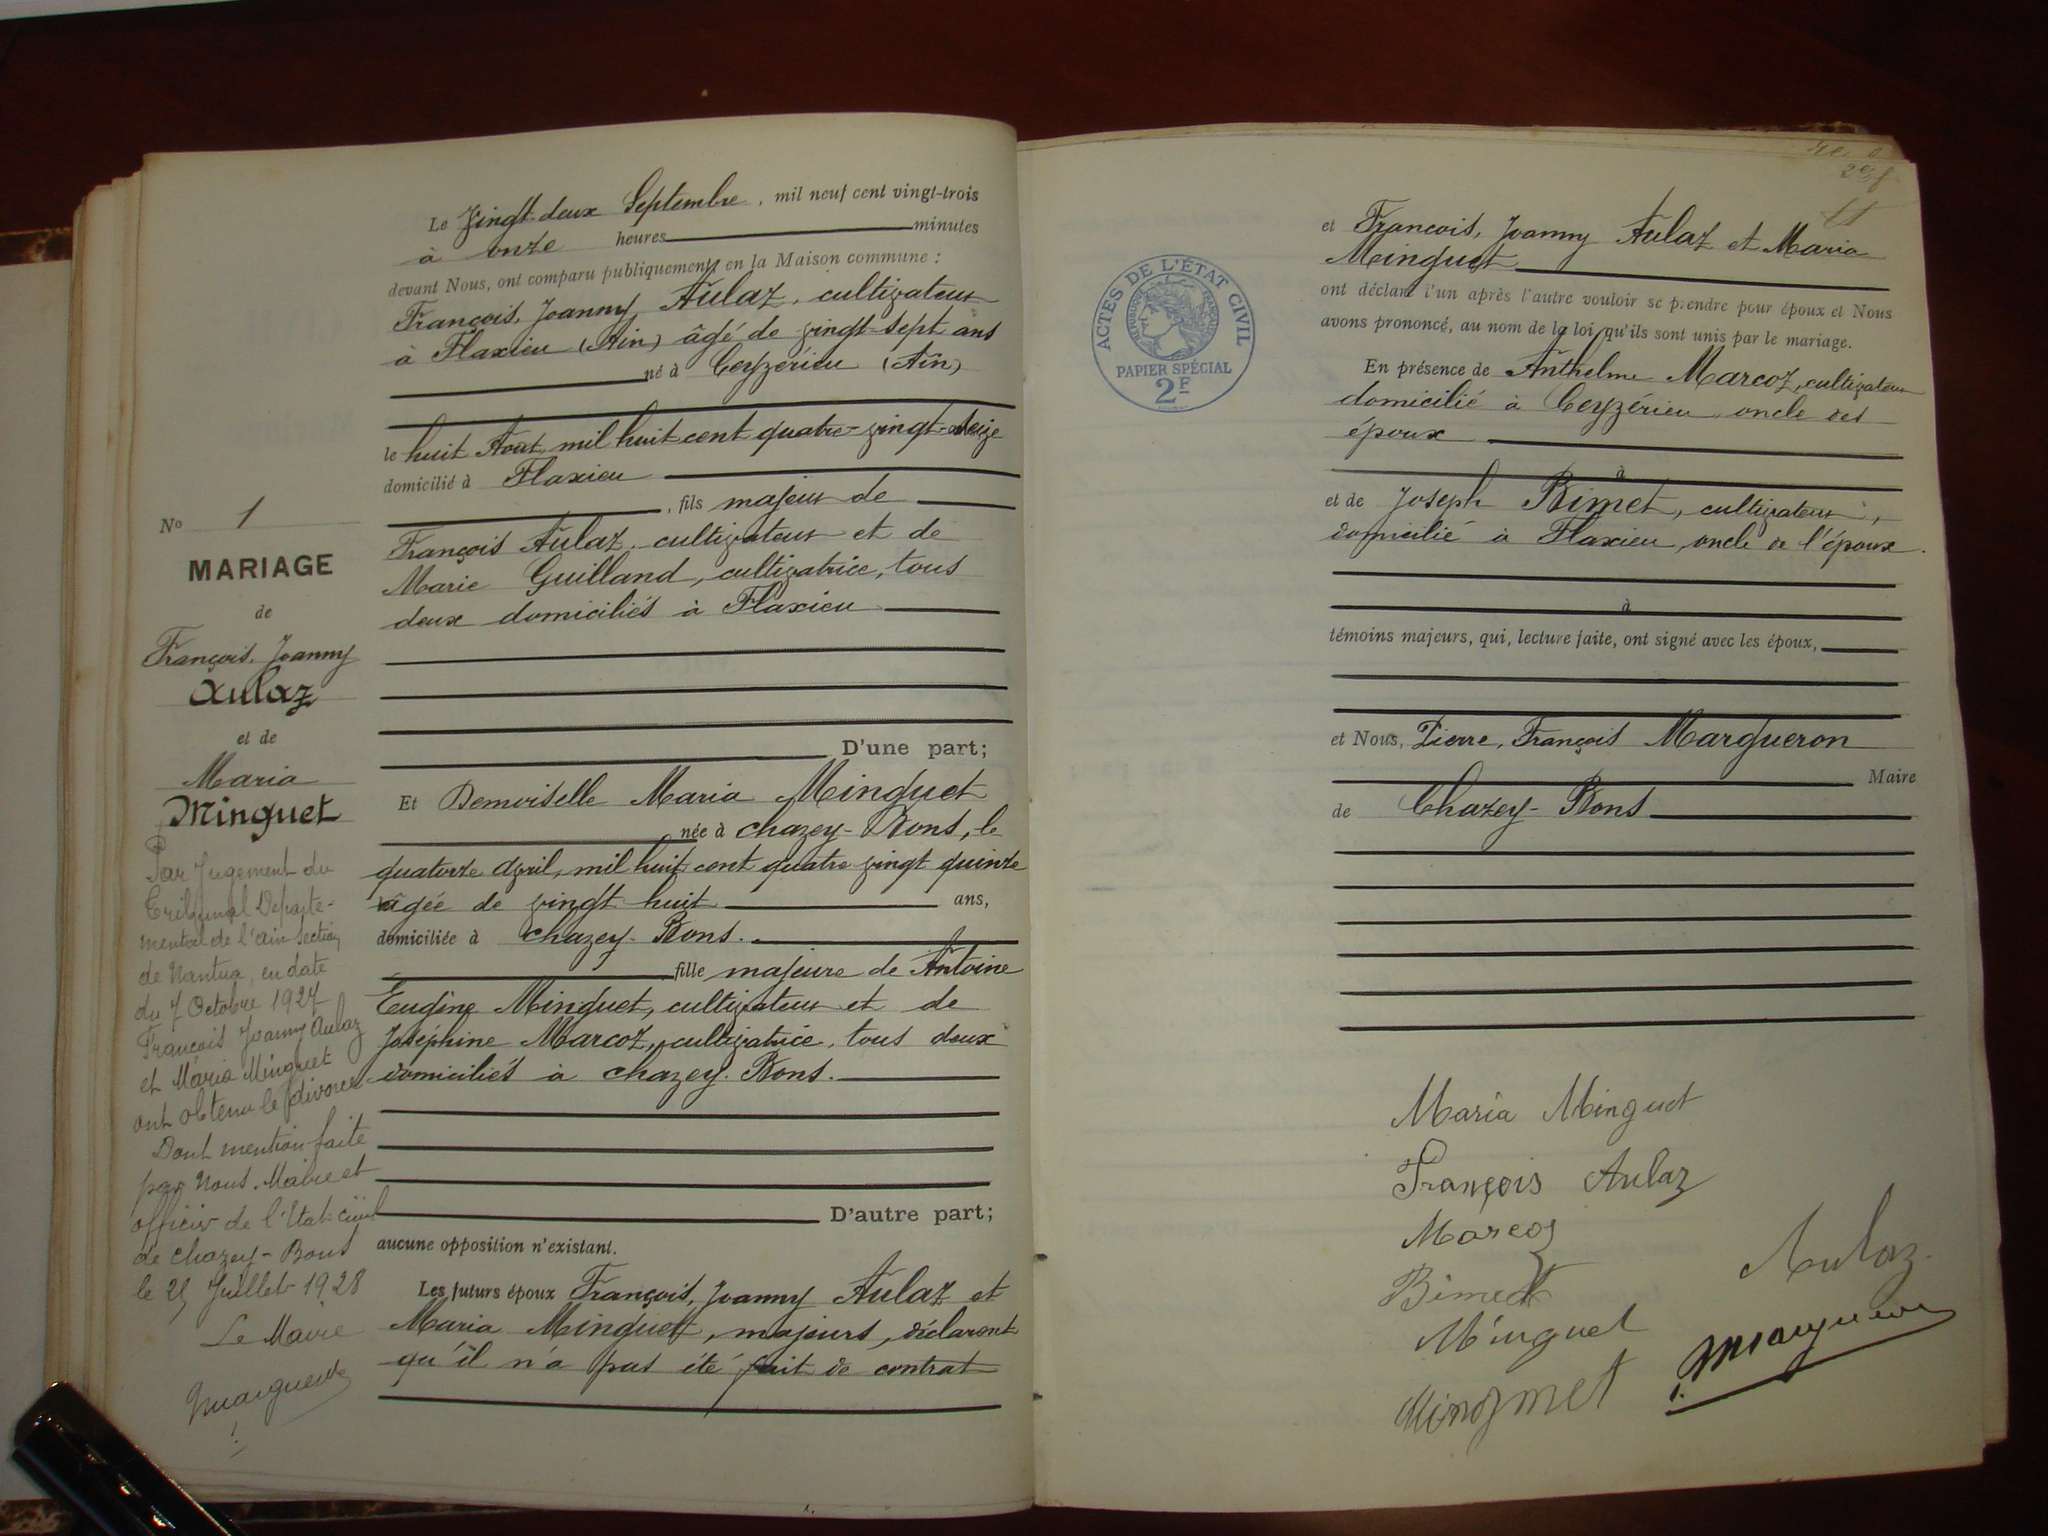 Le Vingt-deux Septembre, mil neuf cent vingt-trois
à onze heures minutes
devant Nous, ont comparu publiquement en la Maison commune :
François, Joanny Aulaz, cultivateur
à Flaxieu (Ain) âgé de vingt-sept ans
né à Ceyzérieu (Ain)
le huit Août mil huit cent quatre-vingt-seize
domicilié à Flaxieu
, fils majeur de
François Aulaz, cultivateur et de
Marie Guilland, cultivatrice, tous
deux domiciliés à Flaxieu
D'une part;
Et Demoiselle Maria Minguet
née à Chazey-Bons, le
quatorze avril, mil huit cent quatre vingt quinze
âgée de vingt huit ans,
domiciliée à Chazey-Bons.
fille majeure de Antoine
Eugène Minguet, cultivateur et de
Joséphine Marcoz, cultivatrice, tous deux
domiciliés à Chazey-Bons.
D'autre part;
aucune opposition n'existant.
Les futurs époux François, Joanny Aulaz et
Maria Minguet, majeurs, déclarent
qu'il n'a pas été fait de contrat
No 1
MARIAGE
de
François, Joanny
Aulaz
et de
Maria
Minguet
Par Jugement du
Tribunal Départe-
mental de l'Ain section
de Nantua, en date
du 7 Octobre 1927
François Joanny Aulaz
et Maria Minguet
ont obtenu le divorce
Dont mention faite
par Nous, Maire et
officier de l'Etat-civil
de Chazey-Bons
le 25 Juillet 1928
Le Maire
Margueron
ACTES DE L'ÉTAT CIVIL
RÉPUBLIQUE FRANÇAISE
PAPIER SPÉCIAL
2F
et François, Joanny Aulaz et Maria
Minguet
ont déclaré l'un après l'autre vouloir se prendre pour époux et Nous
avons prononcé, au nom de la loi, qu'ils sont unis par le mariage.
En présence de Anthelme Marcoz, cultivateur
domicilié à Ceyzérieu, oncle des
époux
à
et de Joseph Bimet, cultivateur,
domicilié à Flaxieu, oncle de l'époux.
à
témoins majeurs, qui, lecture faite, ont signé avec les époux,
et Nous, Pierre, François Margueron
Maire
de Chazey-Bons
Maria Minguet
François Aulaz
Marcoz
Aulaz
Bimet
Minguet
Margueron
Minguet